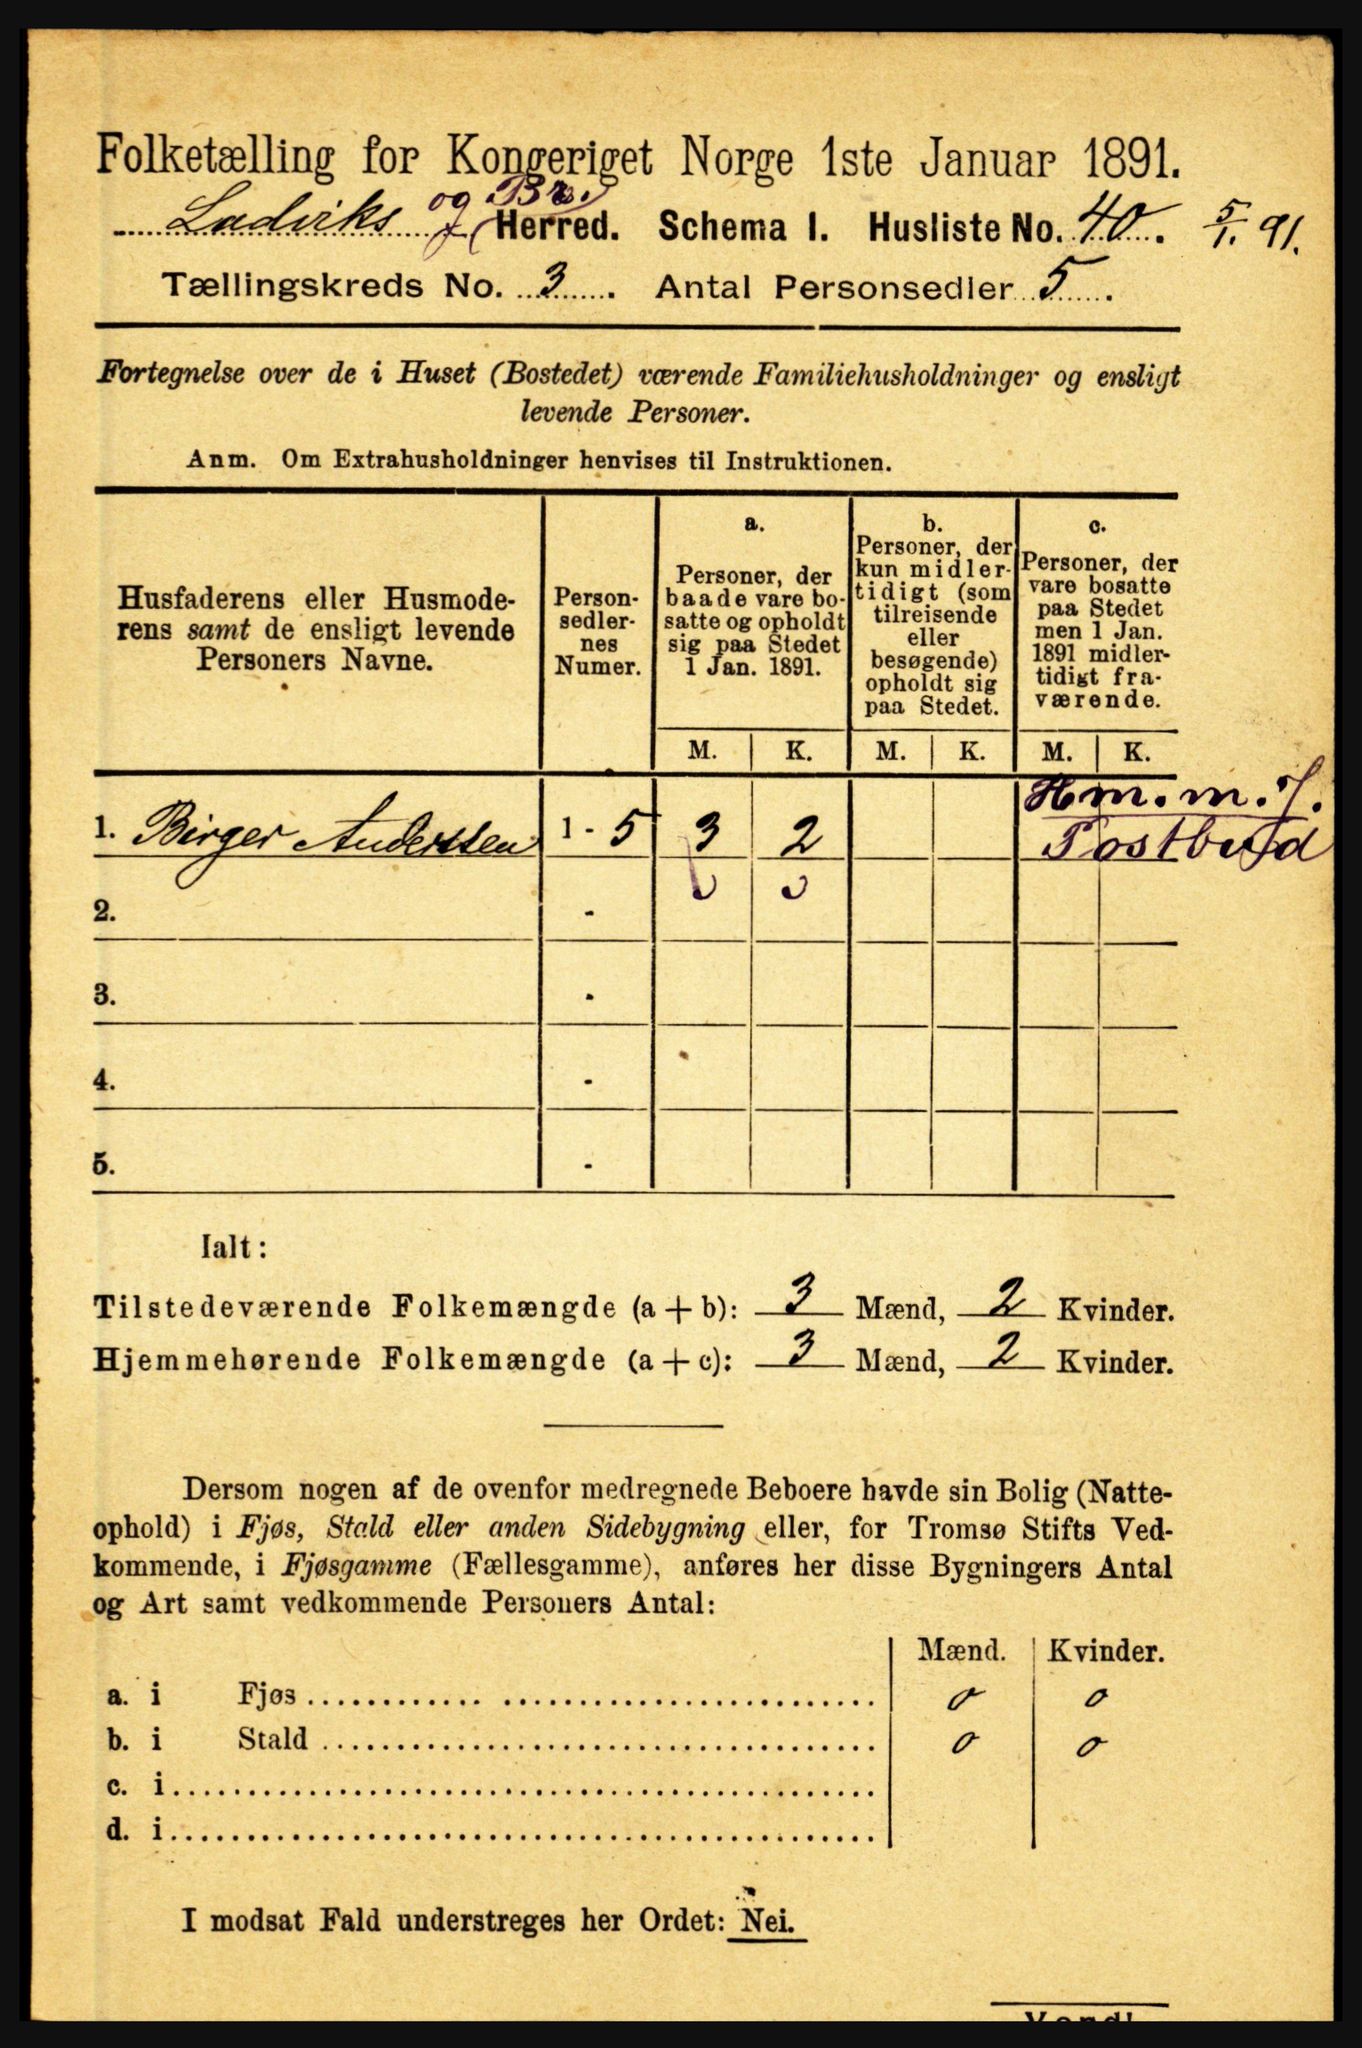 Folketælling for Kongeriget Norge 1ste Januar 1891.
Ladviks og Br. Herred. Schema I. Husliste No. 40. 5/1. 91.
Tællingskreds No. 3. Antal Personsedler 5.
Fortegnelse over de i Huset (Bostedet) værende Familiehusholdninger og ensligt
levende Personer.
Anm. Om Extrahusholdninger henvises til Instruktionen.
Husfaderens eller Husmode-
rens samt de ensligt levende
Personers Navne.
Person-
sedler-
nes
Numer.
a.
Personer, der
baade vare bo-
satte og opholdt
sig paa Stedet
1 Jan. 1891.
b.
Personer, der
kun midler-
tidigt (som
tilreisende
eller
besøgende)
opholdt sig
paa Stedet.
c.
Personer, der
vare bosatte
paa Stedet
men 1 Jan.
1891 midler-
tidigt fra-
værende.
M. K. M. K. M. K.
Hm. m. J.
1. Birger Anderssen 1 - 5 3 2 Postbud
2. -
3. -
4. -
5. -
Ialt:
Tilstedeværende Folkemængde (a + b): 3 Mænd, 2 Kvinder.
Hjemmehørende Folkemængde (a + c): 3 Mænd, 2 Kvinder.
Dersom nogen af de ovenfor medregnede Beboere havde sin Bolig (Natte-
ophold) i Fjøs, Stald eller anden Sidebygning eller, for Tromsø Stifts Ved-
kommende, i Fjøsgamme (Fællesgamme), anføres her disse Bygningers Antal
og Art samt vedkommende Personers Antal:
Mænd. Kvinder.
a. i Fjøs 0 0
b. i Stald 0 0
c. i
d. i
I modsat Fald understreges her Ordet: Nei.
Vend!